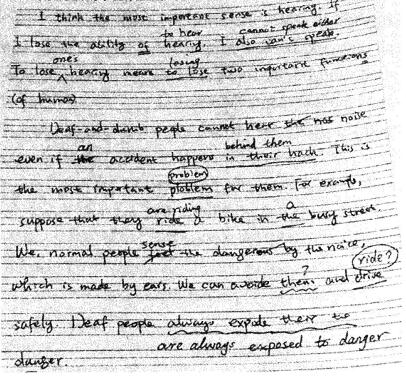 I think the most important sense is hearing. If
to hear cannot speak either
I lose the ability of hearing, I also can't speak.
one's losing
To lose hearing means to lose two important functions
(of human)
Deaf-and-dumb people cannot hear the noise
an behind them
even if the accident happens in their back. This is
problem
the most important ploblem for them. For example,
are riding a
suppose that they ride a bike in the busy street.
sense
We, normal people feel the dangerous by the noise,
? ride?
which is made by ears. We can avoide them and drive
safely. Deaf people always expide their to
are always exposed to danger
danger.